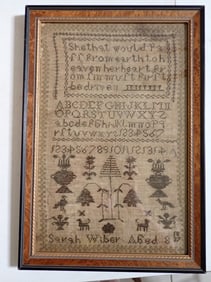 She that would Pa
ss from earth to h
eaven her heart fr
om sin must first
be driven
ABCDEFGHIJKLMN
OPQRSTUVWXYZ
abcdefghijklmnopq
rstuvwxyz 1234567
1234567891011121314
Sarah Wiber Aged 8